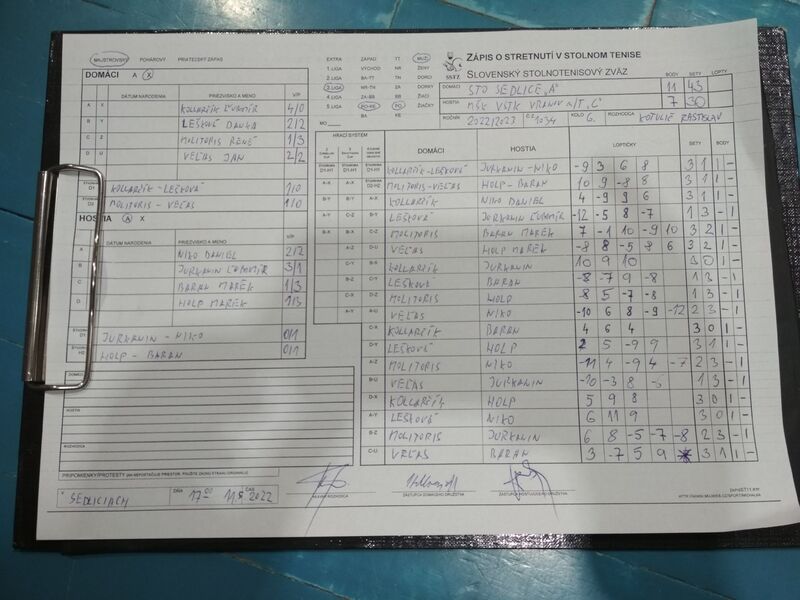 MAJSTROVSKÝ POHÁROVÝ PRIATEĽSKÝ ZÁPAS
ZÁPIS O STRETNUTÍ V STOLNOM TENISE
SLOVENSKÝ STOLNOTENISOVÝ ZVÄZ
SSTZ
EXTRA ZÁPAD TT MUŽI
1.LIGA VÝCHOD NR ŽENY
2.LIGA BA-TT TN DORCI
3.LIGA NR-TN ZA DORKY
4.LIGA ZA-BB BB ŽIACI
5.LIGA PO-KE PO ŽIAČKY
BA KE
MO
BODY SETY LOPTY
DOMÁCI STO SEDLICE "A" 11 43
HOSTIA MŠK VSTK VRANOV N/T "C" 7 30
ROČNÍK 2022/2023 1034 KOLO 6. ROZHODCA KOTULIČ RASTISLAV
DOMÁCI A X
DÁTUM NARODENIA PRIEZVISKO A MENO V/P
A X KOLLARČÍK ĽUBOMÍR 4/0
B Y LEŠKOVÁ DANKA 2/2
C Z MOLITORIS RENÉ 1/3
D U VEĽAS JÁN 2/2
D1 KOLLARČÍK-LEŠKOVÁ 1/0
MOLITORIS - VEĽAS 1/0
HOSTIA A X
DÁTUM NARODENIA PRIEZVISKO A MENO V/P
A NIKO DANIEL 2/2
B JURKANIN ĽUBOMÍR 3/1
C BARAN MAREK 1/3
D HOLP MAREK 1/3
JURKANIN - NIKO 0/1
HOLP - BARAN 0/1
HRACÍ SYSTÉM DOMÁCI HOSTIA LOPTIČKY SETY BODY
KOLLARČÍK-LEŠKOVÁ JURKANIN-NIKO -9 3 6 8 3 1 1 -
A-X A-X MOLITORIS-VEĽAS HOLP - BARAN 10 9 -8 8 3 1 1 -
B-Y B-Y A-X KOLLARČÍK NIKO DANIEL 4 -9 9 6 3 1 1 -
A-Y C-Z B-Y LEŠKOVÁ JURKANIN ĽUBOMÍR -12 -5 8 -7 1 3 - 1
B-X B-X C-Z MOLITORIS BARAN MAREK 7 -1 10 -9 10 3 2 1 -
A-Z D-U VEĽAS HOLP MAREK -8 8 -5 8 6 3 2 1 -
C-Y B-X KOLLARČÍK JURKANIN 10 9 10 3 0 1 -
B-Z C-Y LEŠKOVÁ BARAN -8 -7 9 -8 1 3 - 1
C-X D-Z MOLITORIS HOLP -8 5 -7 -8 1 3 - 1
A-Y A-U VEĽAS NIKO -10 6 8 -9 -12 2 3 - 1
C-X KOLLARČÍK BARAN 4 6 4 3 0 1 -
D-Y LEŠKOVÁ HOLP 2 5 -9 9 3 1 1 -
A-Z MOLITORIS NIKO -11 4 -9 4 -7 2 3 - 1
B-U VEĽAS JURKANIN -10 -3 8 -6 1 3 - 1
D-X KOLLARČÍK HOLP 5 9 8 3 0 1 -
A-Y LEŠKOVÁ NIKO 6 11 9 3 0 1 -
B-Z MOLITORIS JURKANIN 6 8 -5 -7 -8 2 3 - 1
C-U VEĽAS BARAN 3 -7 5 9 3 1 1 -
HOSTIA
ROZHODCA
PRIPOMIENKY/PROTESTY
V SEDLICIACH DŇA 17.00 ČAS 2022
HLAVNÝ ROZHODCA ZÁSTUPCA DOMÁCEHO DRUŽSTVA ZÁSTUPCA HOSŤUJÚCEHO DRUŽSTVA